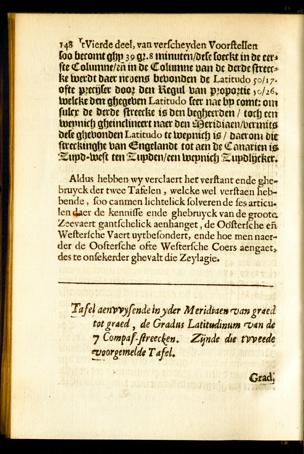 148 't Vierde deel, van verscheyden Voorstellen
soo beromt ghy 39 gr. 8 minuten/dese soeckt in de eer-
ste Columne/eñ in de Columne van de derde streec-
ke werdt daer nevens bevonden de Latitudo 50/17.
ofte preciser door den Regul van proportie 50/26.
welcke den ghegeven Latitudo seer nae by comt: om
sulcx de derde streecke is den begheerden / toch een
weynich ghinclineert naer den Meridiaen/vermits
dese ghevonden Latitudo te weynich is / daerom die
streckinghe van Engelandt tot aen de Canarien is
Zuyd-west ten Zuyden/een weynich Zuydlijcker.
Aldus hebben wy verclaert het verstant ende ghe-
bruyck der twee Tafelen, welcke wel verstaen heb-
bende, soo canmen lichtelick solveren de ses articu-
len daer de kennisse ende ghebruyck van de groote
Zeevaert gantschelick aenhanget, de Oostersche eñ
Westersche Vaert uytbesondert, ende hoe men naer-
der de Oostersche ofte Westersche Coers aengaet,
des te onsekerder ghevalt die Zeylagie.
Tafel aenwysende in yder Meridiaen van graed
tot graed, de Gradus Latitudinum van de
7 Compas-streecken. Zijnde die tweede
voorgemelde Tafel.
Grad,